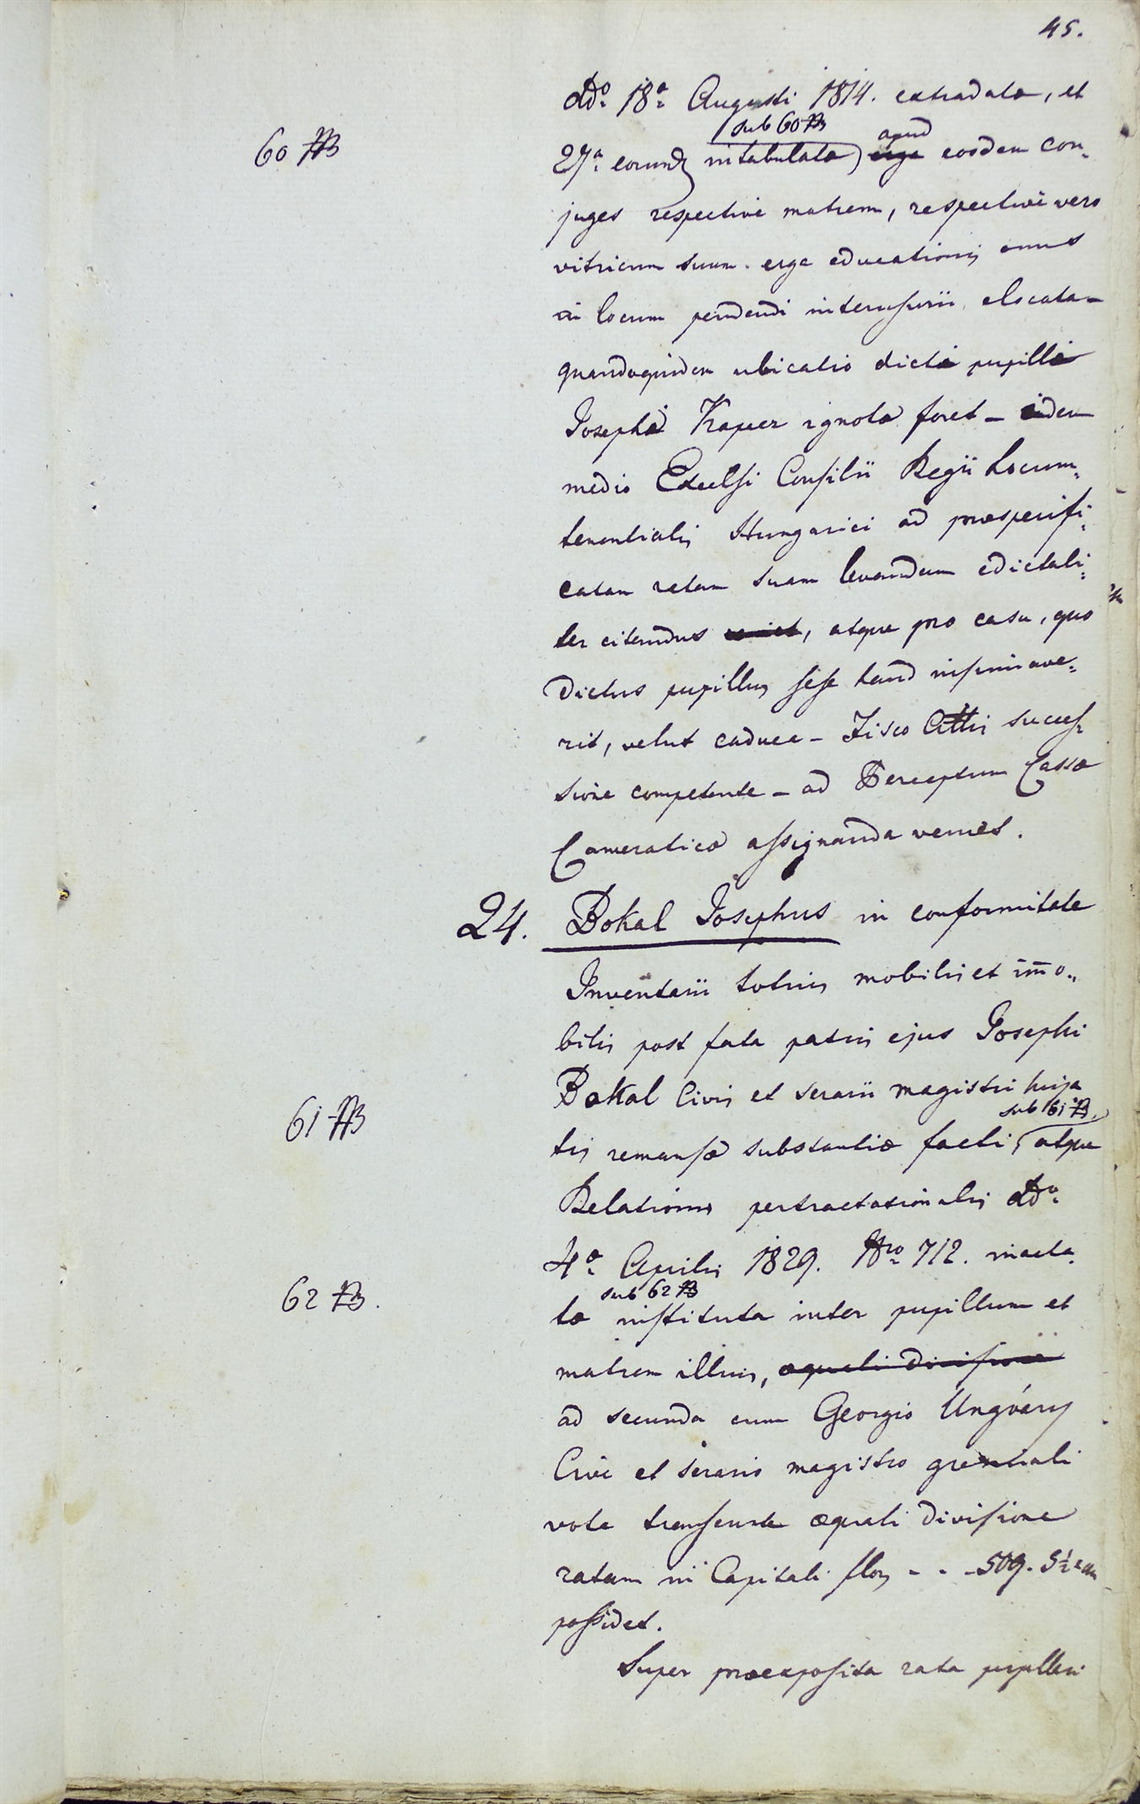 45.
ddo 18a Augusti 1814. extradata, et
60 AB
sub 60 AB
27a eorund intabulata) erga apud eosdem con-
juges respective matrem, respective vero
vitricum suum erga educationis onus
in locum pendendi interusurii elocata –
quandoquidem ubicatio dicti pupilli
Josephi ignota foret – idem
medio Excelsi Consilii Regii Locum-
tenentialis Hungarici ad praespecifi-
catam ratam suam levandam edictali-
ter citandus veniet, atque pro casu, quo
dictus pupillus sese haud insinuave-
rit, velut caduca – Fisco Cittis succes-
sione competente – ad Perceptum Cassae
Cameraticae assignanda veniet.
24. Bokal Josephus in conformitate
Inventarii totius mobilis et immo-
bilis post fata patris ejus Josephi
Bokal Civis et serarii magistri huja
61 AB
sub 61 AB.
tis remansae substantiae facti, atque
Relationis pertractationalis ddo
4a Aprilis 1829. Nro 712. inacta-
62 AB.
sub 62 AB
tae instituta inter pupillum et
matrem illius, aequali divisione
ad secunda cum Georgio Ungváry
Cive et serario magistro gremiali
vota transeunte aequali divisione
ratam in Capitali flos - - - 509. 5½
possidet.
Super praeexposita rata pupillari